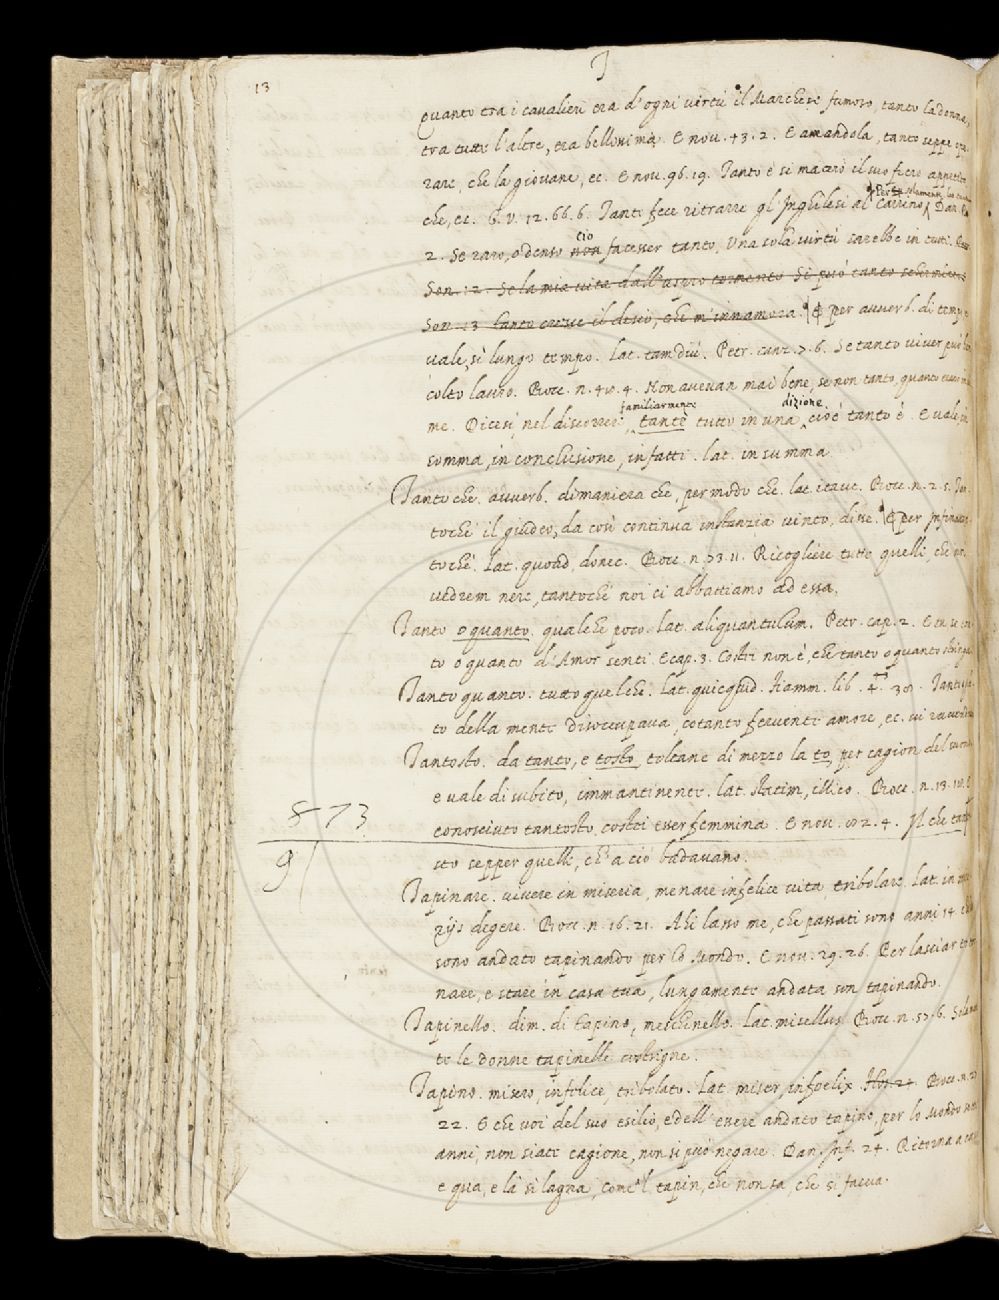 13
T
quanto tra i cavalieri era d'ogni virtù il Marchese famoso, tanto la donna,
tra tutte l'altre, era bellissima. E nov. 43. 2. E amandola, tanto seppe ope-
rare, che la giovane, ec. E nov. 96. 19. Tanto è si macerò il suo fiero appetito
che, ec. G. V. 12. 66. 6. Tanti fece ritrarre gl'Inghilesi al Carrino, Dan.
2. Se raro, o denso non ciò facesser tanto, Una sola virtù sarebbe in tutti.
Son. 12. Se la mia vita dall'aspro tormento Si può tanto schermire
Son. 13 tanto cresce il desio, che m'innamora. ¶ per avverb. di tempo
vale, sì lungo tempo. Lat. tamdiu. Petr. canz. 7. 6. Se tanto viver può ben
colto lauro. Bocc. n. 40. 4. Non avevan mai bene, se non tanto, quanto
me. Dicesi, nel discorrer familiarmente, tante tutto in una dizione, cioè tanto è. E vale, in
somma, in conclusione, infatti. lat. in summa
Tanto che. avverb. di maniera che, per modo che. lat. itaut. Bocc. n. 2. 5. Tan-
tochè il giudeo, da così continua instanzia vinto, disse. ¶ per infinat-
tochè. Lat. quoad, donec. Bocc. n. 73. 11. Ricogliere tutte quelle, che noi
vedrem nere, tantochè noi ci abbattiamo ad essa.
Tanto o quanto. qualche poco. lat. aliquantulum. Petr. cap. 2. E tu se tan-
to o quanto d'Amor senti. E cap. 3. Costei non è, che tanto o quanto stringa
Tanto quanto. tutto quelche. lat. quicquid. Fiamm. lib. 4. 30. Tanto quan-
to della mente disoccupava, cotanto fervente amore, ec. vi
Tantosto. da tanto, e tosto, toltane di mezzo la to, per cagion del suono
e vale di subito, immantinente. lat. statim, illico. Bocc. n. 13. 18.
conosciuto tantosto, costei esser femmina. E nov. 2. 4. Il che tanto
sto sepper quelli, ch'a ciò badavano.
873
91
Tapinare. vivere in miseria, menare infelice vita, tribolare. Lat. in mise-
rijs degere. Bocc. n. 16. 21. Ahi lasso me, che passati sono anni 14. che
sono andato tapinando per lo Mondo. E nov. 29. 26. Per lasciar tor-
nare, e stare in casa tua, lungamente andata son tapinando.
Tapinello. dim. di tapino, meschinello. Lat. misellus Bocc. n. 57. 6.
te le donne tapinelle costrigne.
Tapino. misero, infelice, tribolato. Lat. miser, infoelix. Bocc. n. 27
22. E che voi del suo esilio, e dell'essere andato tapino, per lo Mondo sette
anni, non siate cagione, non si può negare. Dan. Inf. 24. Ritorna a casa
e qua, e là si lagna, come'l tapin, che non sa, che si faccia.